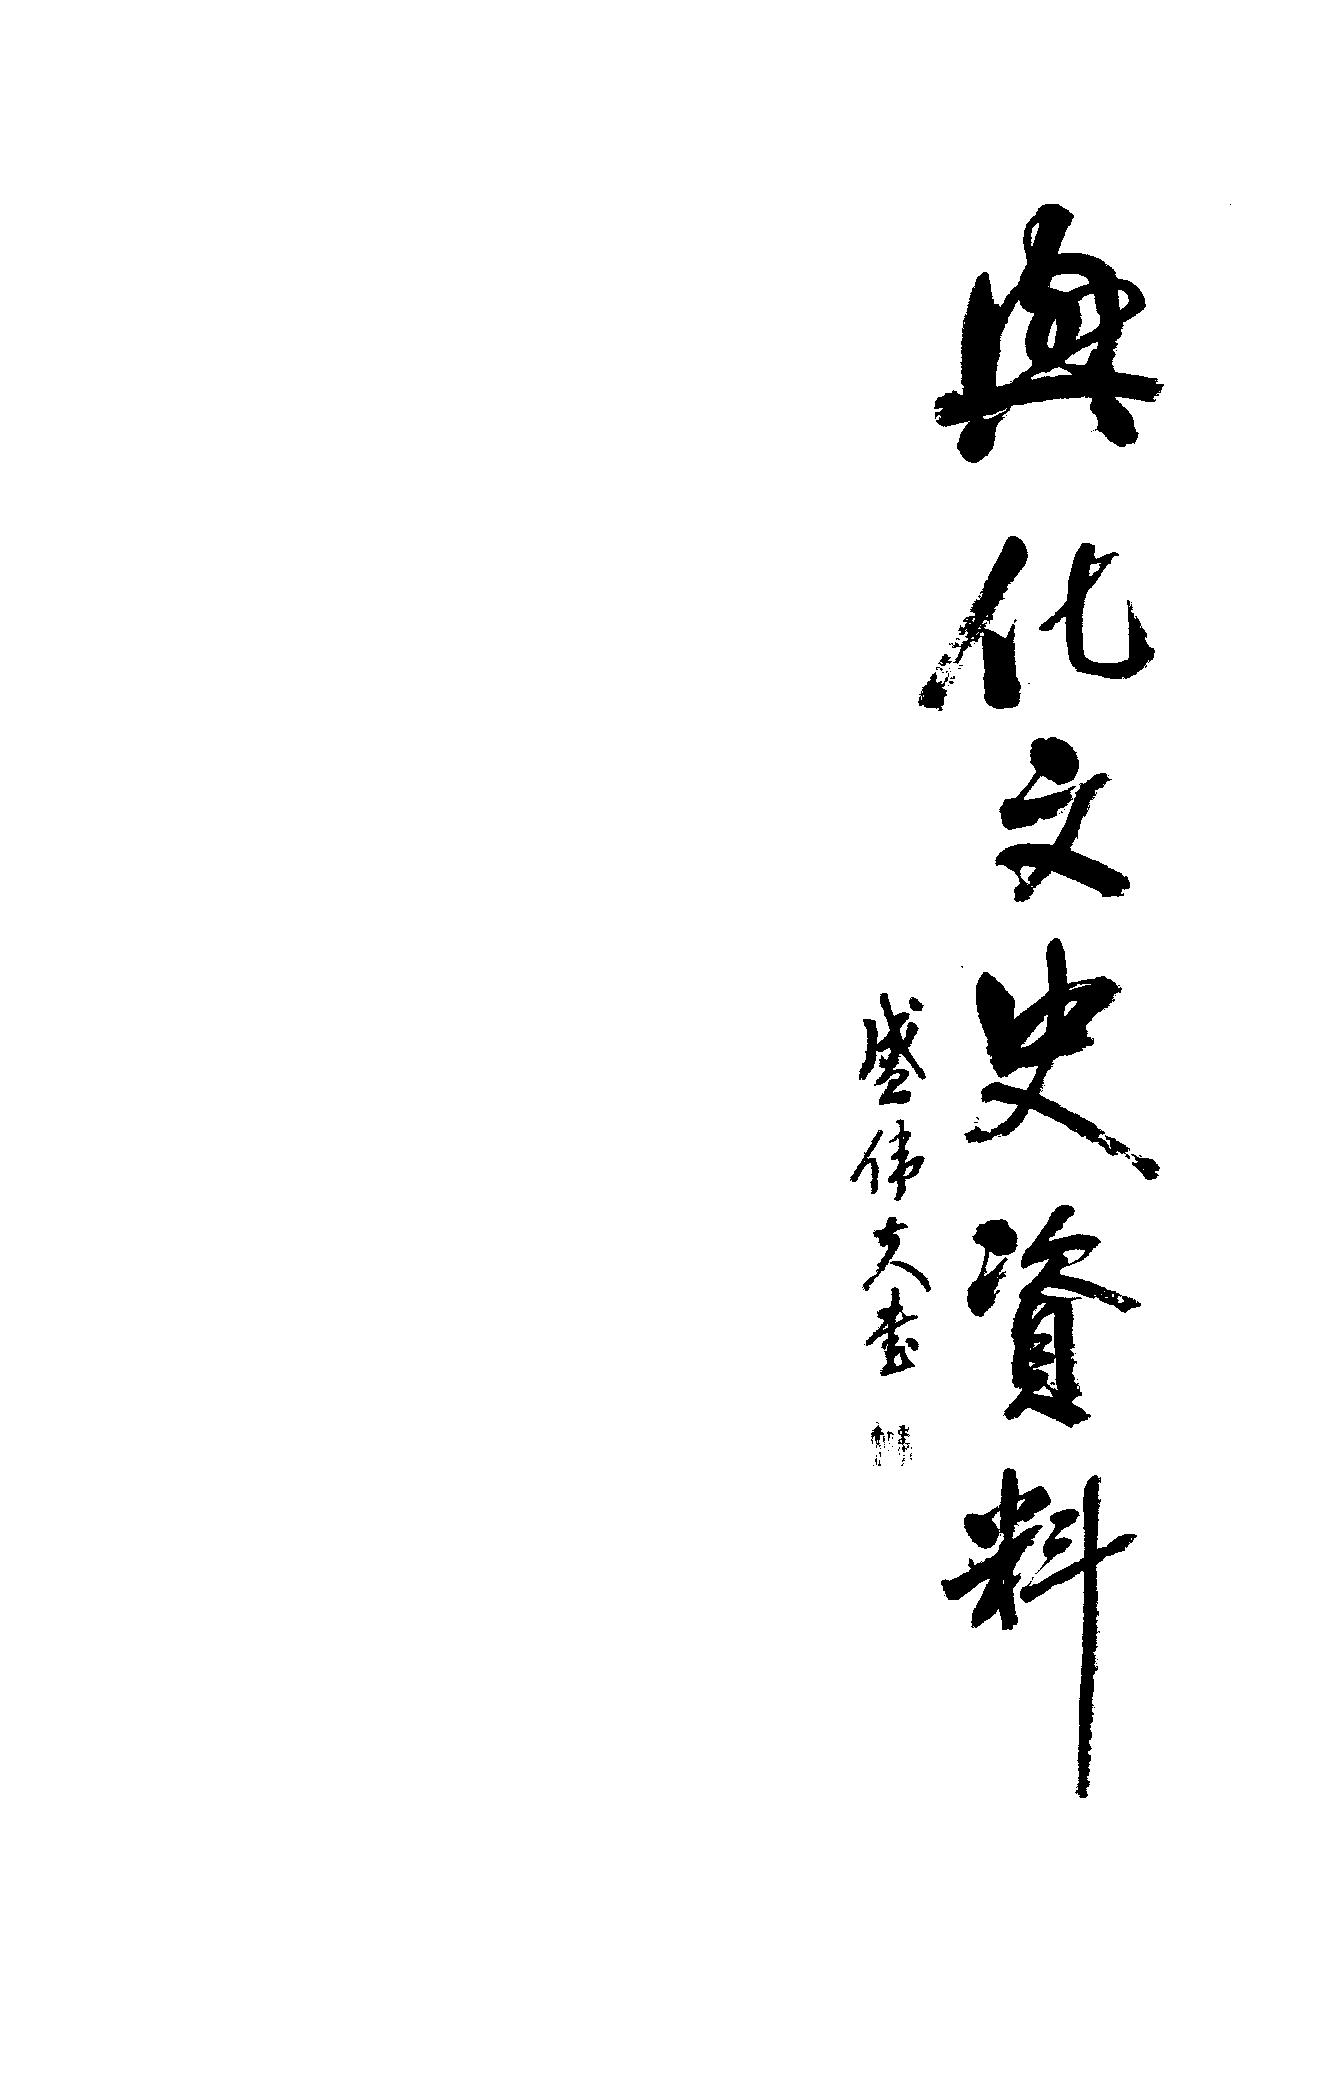 興化文史資料
盛伟夫書